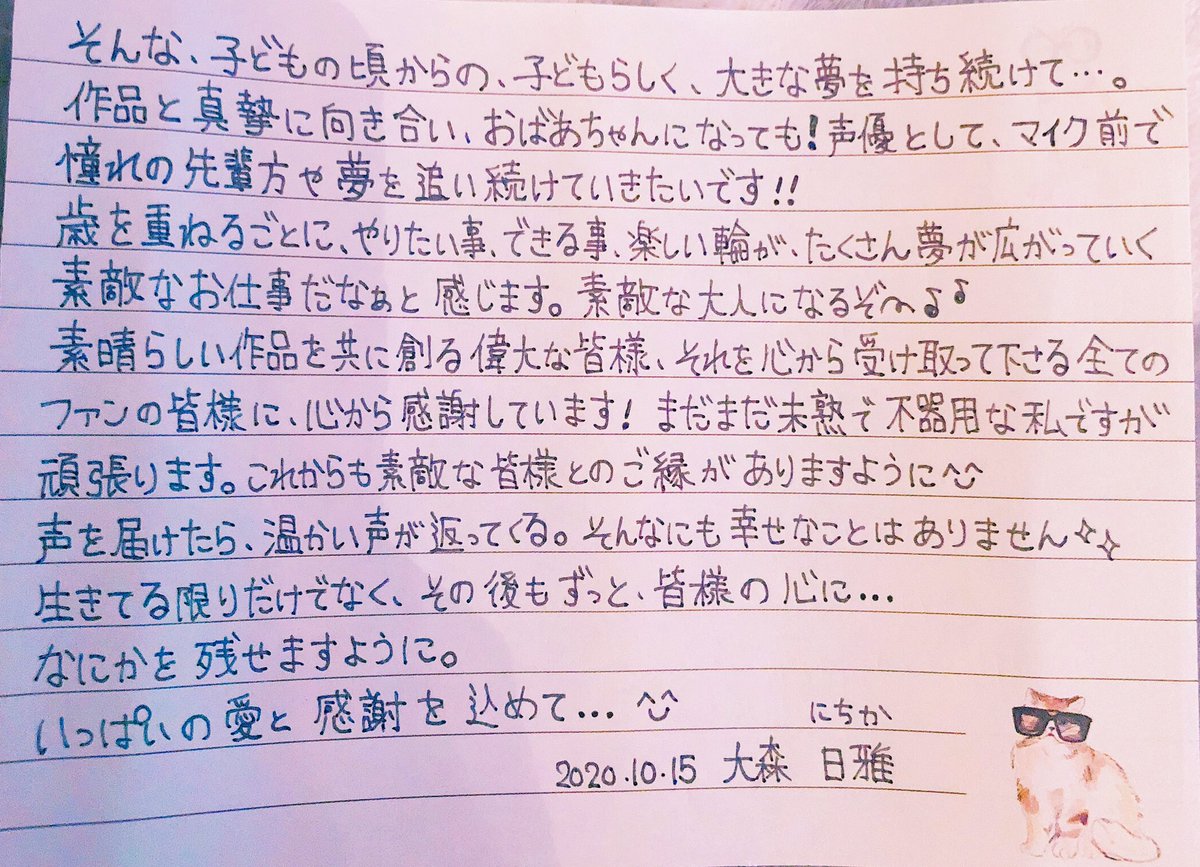 そんな、子どもの頃からの、子どもらしく、大きな夢を持ち続けて…。
作品と真摯に向き合い、おばあちゃんになっても!声優として、マイク前で
憧れの先輩方や夢を追い続けていきたいです!!
歳を重ねるごとに、やりたい事、できる事、楽しい輪が、たくさん夢が広がっていく
素敵なお仕事だなぁと感じます。素敵な大人になるぞ〜♪♪
素晴らしい作品を共に創る偉大な皆様、それを心から受け取って下さる全ての
ファンの皆様に、心から感謝しています!まだまだ未熟で不器用な私ですが
頑張ります。これからも素敵な皆様とのご縁がありますように^^
声を届けたら、温かい声が返ってくる。そんなにも幸せなことはありません✧✧
生きてる限りだけでなく、その後もずっと、皆様の心に…
なにかを残せますように。
いっぱいの愛と感謝を込めて…^^
にちか
2020.10.15 大森 日雅